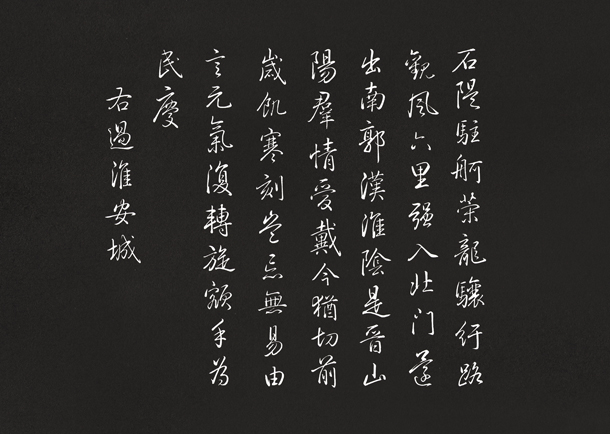 石隄駐舸策龍驤紆路
觀風六里强入北门還
出南郭漢淮陰是晋山
陽羣情愛戴今猶切前
歲飢寒刻豈忘無易由
言元氣復轉旋額手為
民慶
右過淮安城